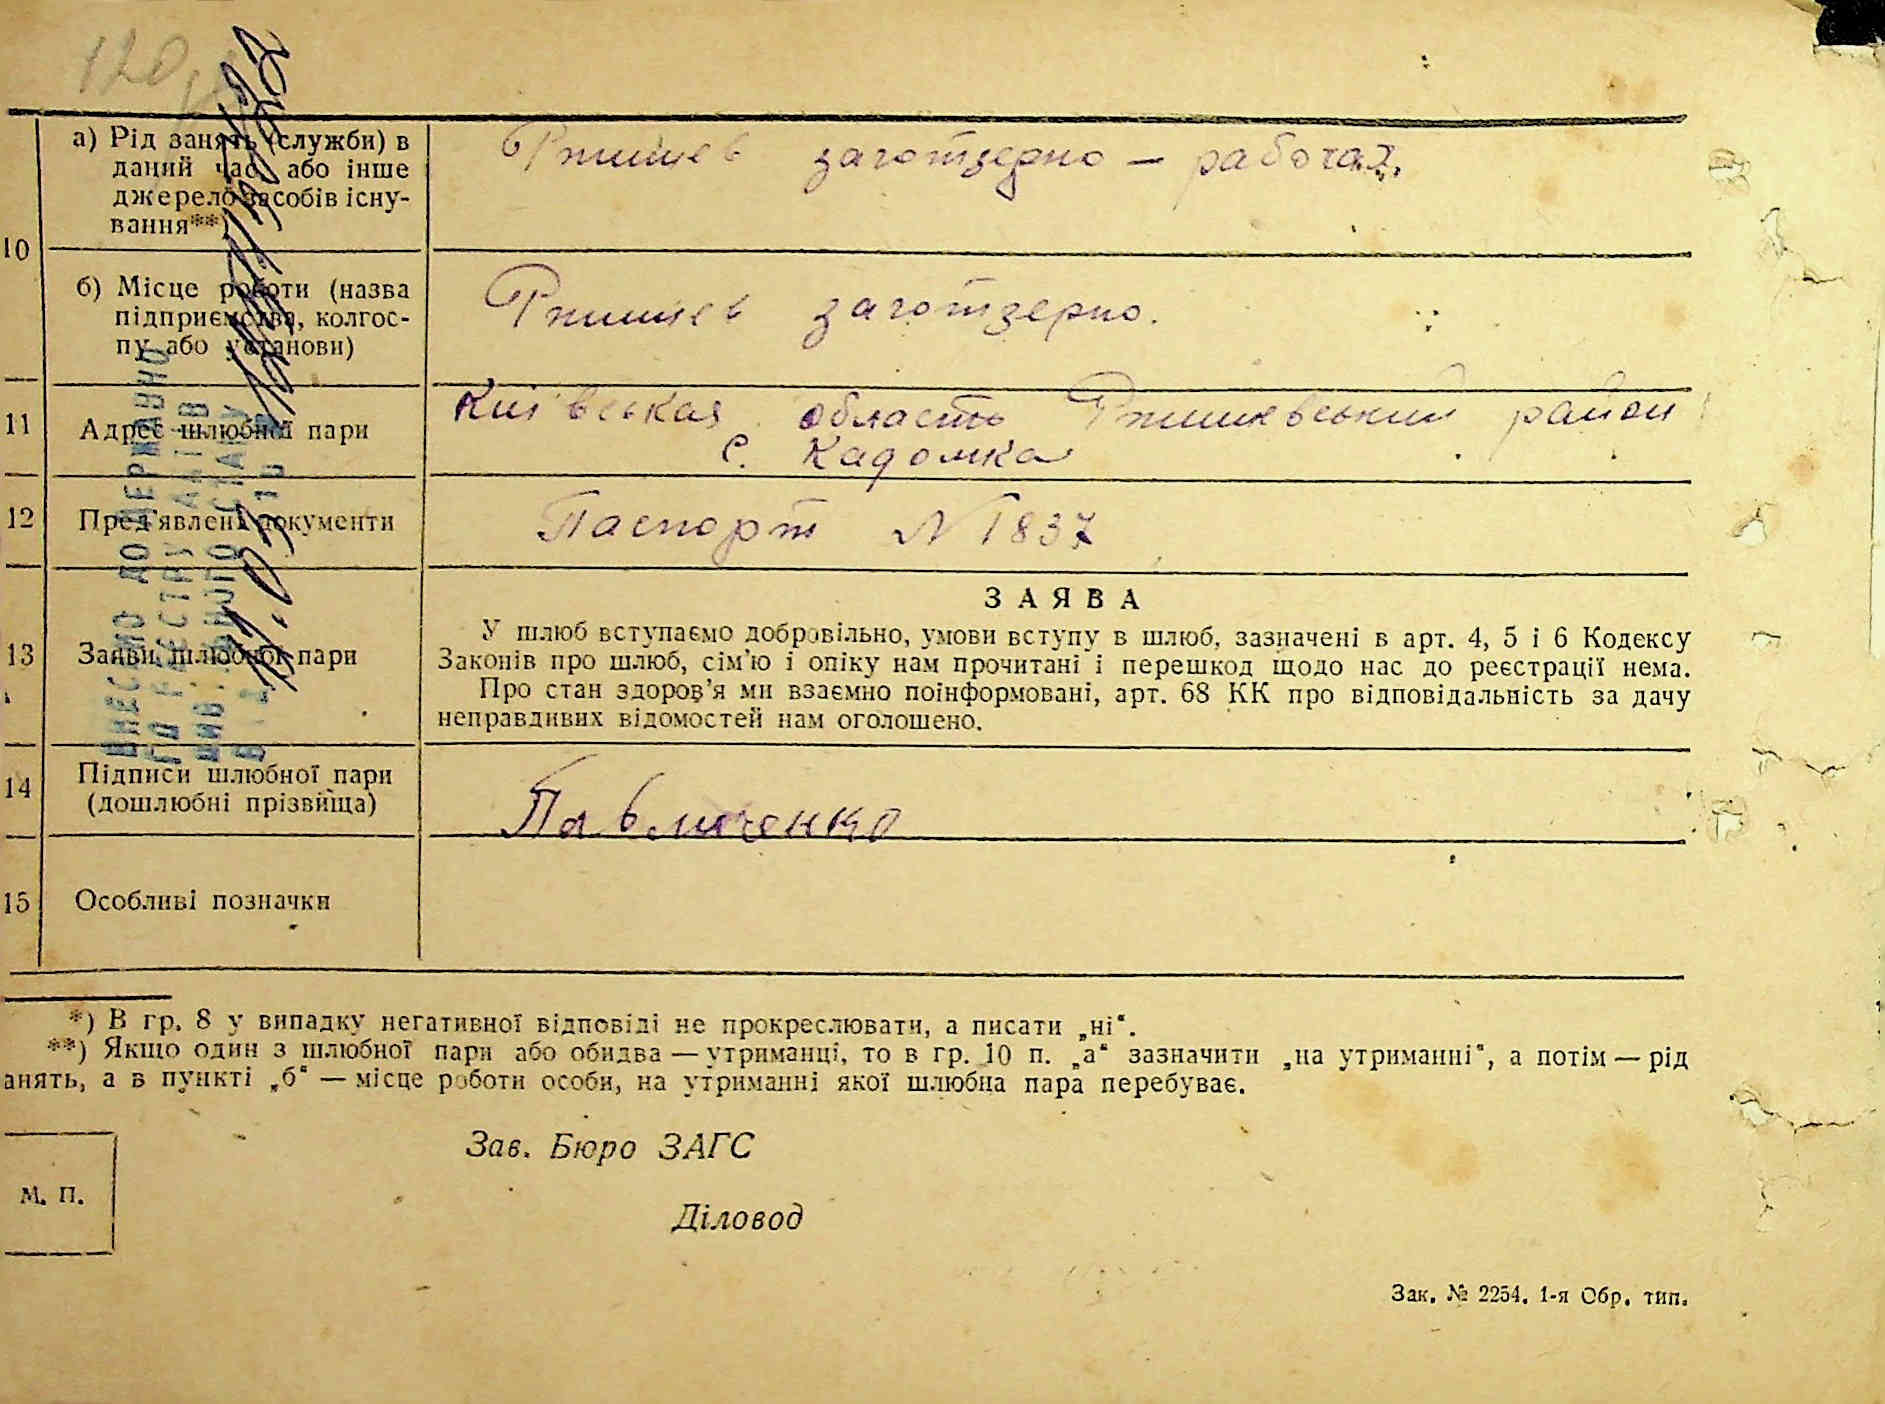 120
а) Рід занять (служби) в
даний час або інше
джерело засобів існу-
вання**)
Ржищев заготзерно — рабочая.
10
б) Місце роботи (назва
підприємства, колгос-
пу або установи)
Ржищев заготзерно.
11
Адрес шлюбної пари
Київськая область Ржищевський район
с. Кадомка
12
Пред'явлені документи
Паспорт N 1837
13
Заяви шлюбної пари
ЗАЯВА
У шлюб вступаємо добровільно, умови вступу в шлюб, зазначені в арт. 4, 5 і 6 Кодексу
Законів про шлюб, сім'ю і опіку нам прочитані і перешкод щодо нас до реєстрації нема.
Про стан здоров'я ми взаємно поінформовані, арт. 68 КК про відповідальність за дачу
неправдивих відомостей нам оголошено.
14
Підписи шлюбної пари
(дошлюбні прізвища)
Павличенко
15
Особливі позначки
*) В гр. 8 у випадку негативної відповіді не прокреслювати, а писати „ні“.
**) Якщо один з шлюбної пари або обидва — утриманці, то в гр. 10 п. „а“ зазначити „на утриманні“, а потім — рід
анять, а в пункті „б“ — місце роботи особи, на утриманні якої шлюбна пара перебуває.
Зав. Бюро ЗАГС
М. П.
Діловод
Зак. № 2254. 1-я Обр. тип.
ВНЕСЕНО ДО ДЕРЖАВНО
ГО РЕЄСТРУ АКТІВ
ЦИВІЛЬНОГО СТАНУ